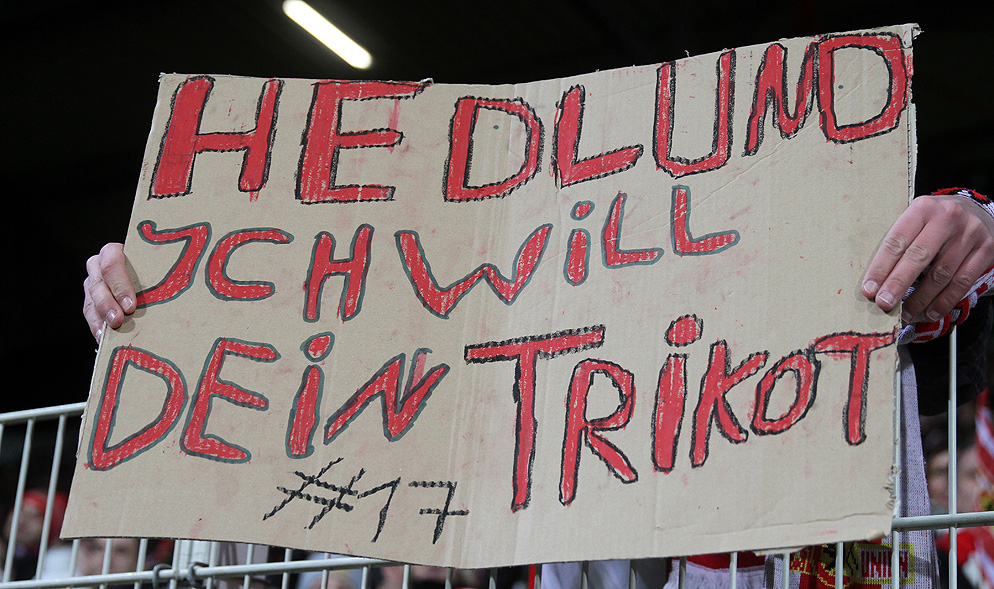 HEDLUND
ICH WiLL
DEiN TRiKOT
#17
UNION